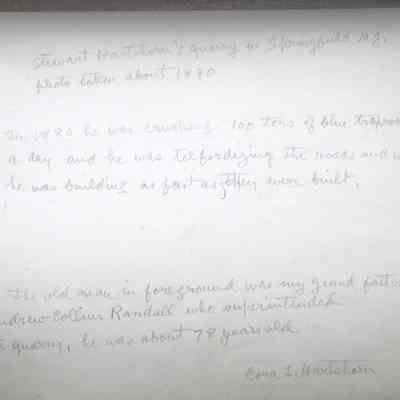 Stewart Hartshorn's quarry in Springfield N.J.
photo taken about 1890
In 1880 he was crushing 100 tons of blue traprock
a day and he was telfordizing the roads and
he was building as fast as they were built.
The old man in foreground was my grand father
Andrew Collins Randall who superintended
quarry, he was about 78 years old
Cora L. Hartshorn